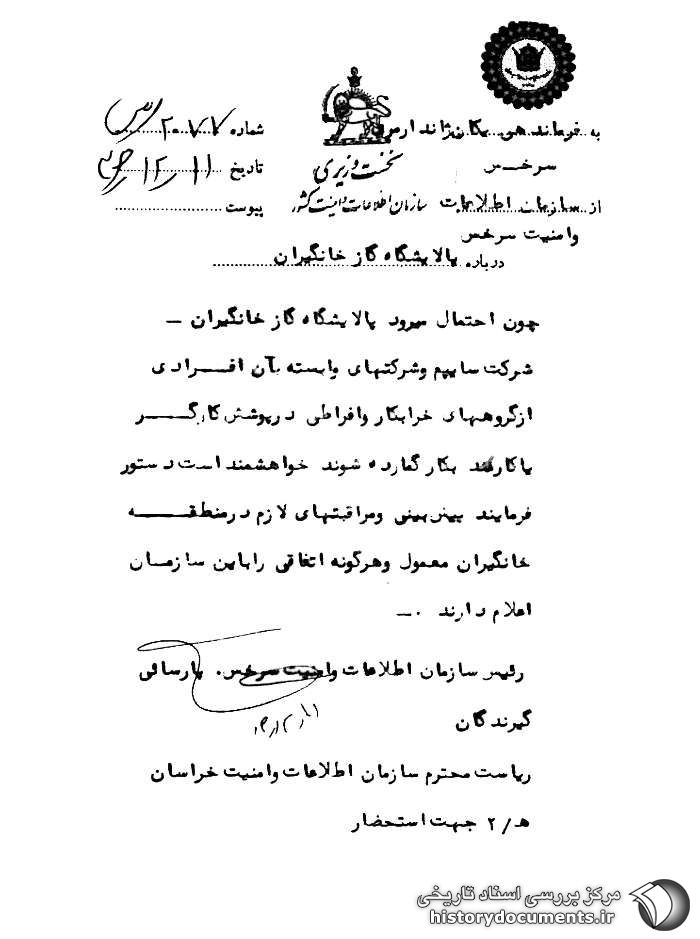 به فرماندهی یکان ژاندارمری
سرخس
از سازمان اطلاعات
وامنیت سرخس
درباره پالایشگاه گاز خانگیران
نخست وزیری
سازمان اطلاعات و امنیت کشور
شماره ۲۰۷۷
تاریخ ۱۲/۱۱
پیوست
چون احتمال میرود پالایشگاه گاز خانگیران –
شرکت سایپم وشرکتهای وابسته بآن افرادی
ازگروههای خرابکار وافراطی درپوشش کارگر
یاکارمند بکار گمارده شوند خواهشمند است دستور
فرمایند پیش بینی ومراقبتهای لازم درمنطقه
خانگیران معمول وهرگونه اتفاقی راباین سازمان
اعلام دارند .–
رئیس سازمان اطلاعات وامنیت سرخس. پارسائی
گیرندگان
ریاست محترم سازمان اطلاعات وامنیت خراسان
ه/۲ جهت استحضار
مرکز بررسی اسناد تاریخی
historydocuments.ir